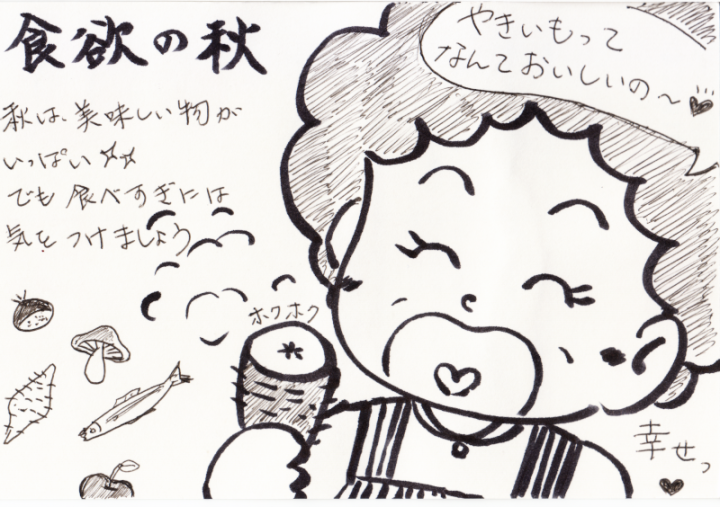 食欲の秋
秋は、美味しい物が
いっぱい☆☆
でも食べすぎには
気をつけましょう
やきいもって
なんておいしいの〜♥
ホクホク
幸せっ
♥